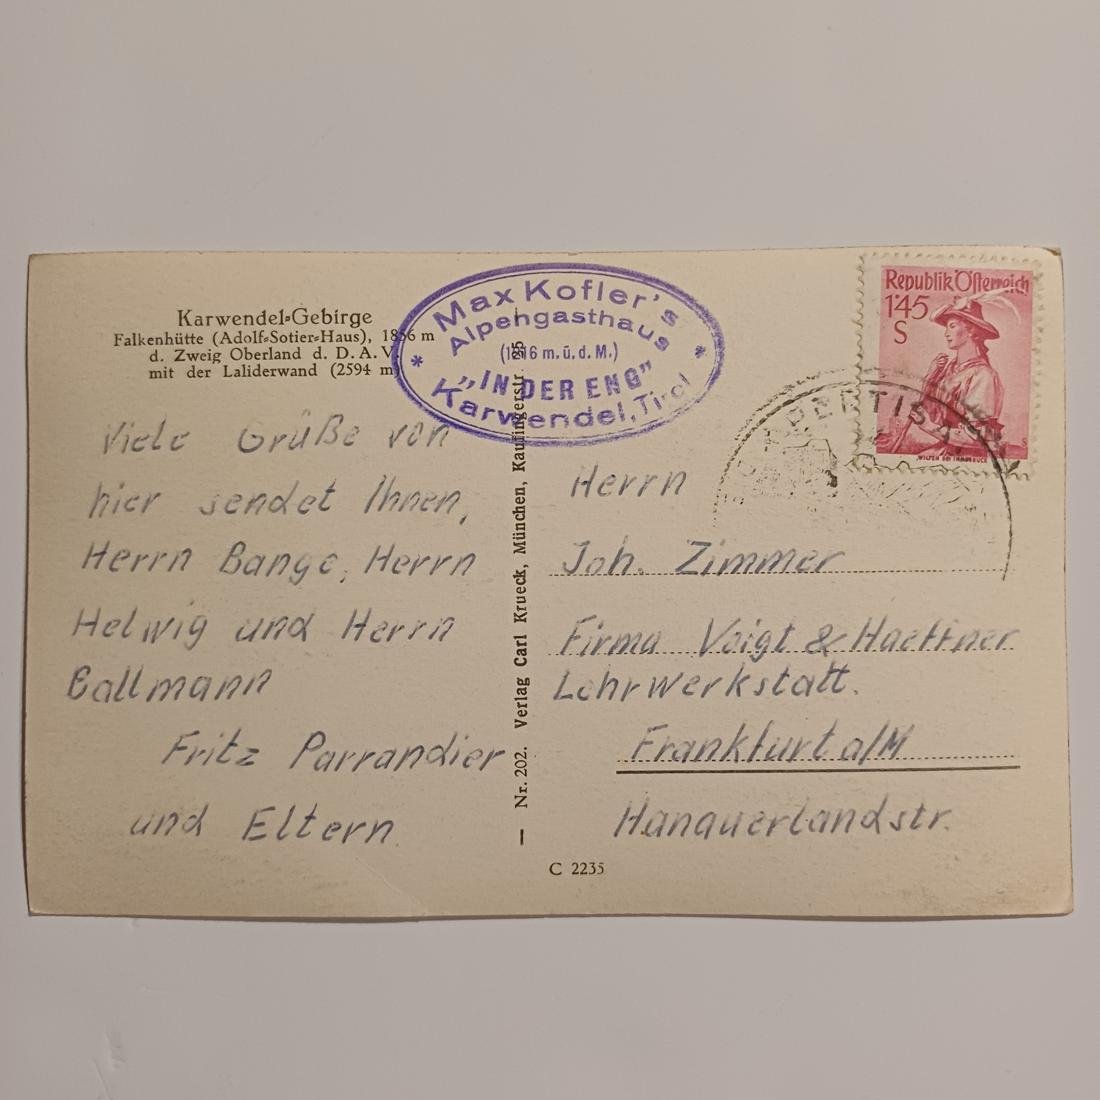 Karwendel-Gebirge
Falkenhütte (Adolf-Sotier-Haus), 1856 m
d. Zweig Oberland d. D. A. V.
mit der Laliderwand (2594 m)
Max Kofler's
Alpengasthaus
(1216 m. ü. d. M.)
„IN DER ENG"
Karwendel, Tirol
Republik Österreich
1'45
S
WILTEN BEI INNSBRUCK
Viele Grüße von
hier sendet Ihnen,
Herrn Bange, Herrn
Helwig und Herrn
Ballmann
Fritz Parrandier
und Eltern.
— Nr. 202. Verlag Carl Krueck, München, Kaufingerstr. 25
Herrn
Joh. Zimmer
Firma Voigt & Haeffner
Lehrwerkstatt.
Frankfurt a/M
Hanauerlandstr.
C 2235